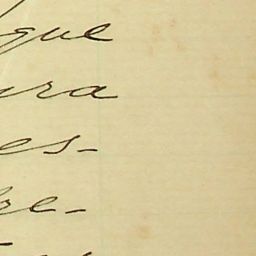 que
ura
es-
re-